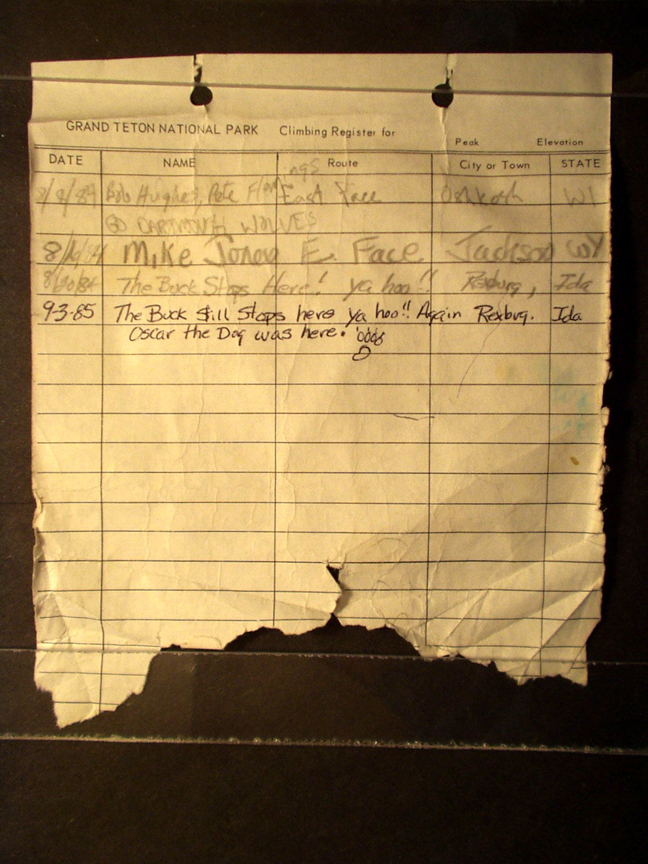 GRAND TETON NATIONAL PARK Climbing Register for
Peak Elevation
DATE NAME Route City or Town STATE
8/8/84 Bob Hughes, Pete Flemings East Face Oshkosh WI
GO DARTMOUTH WOLVES
Mike Jones E. Face Jackson WY
8/30/84 The Buck Stops Here! ya hoo!! Rexburg, Ida
9-3-85 The Buck still stops here ya hoo!! Again Rexburg. Ida
Oscar the Dog was here.